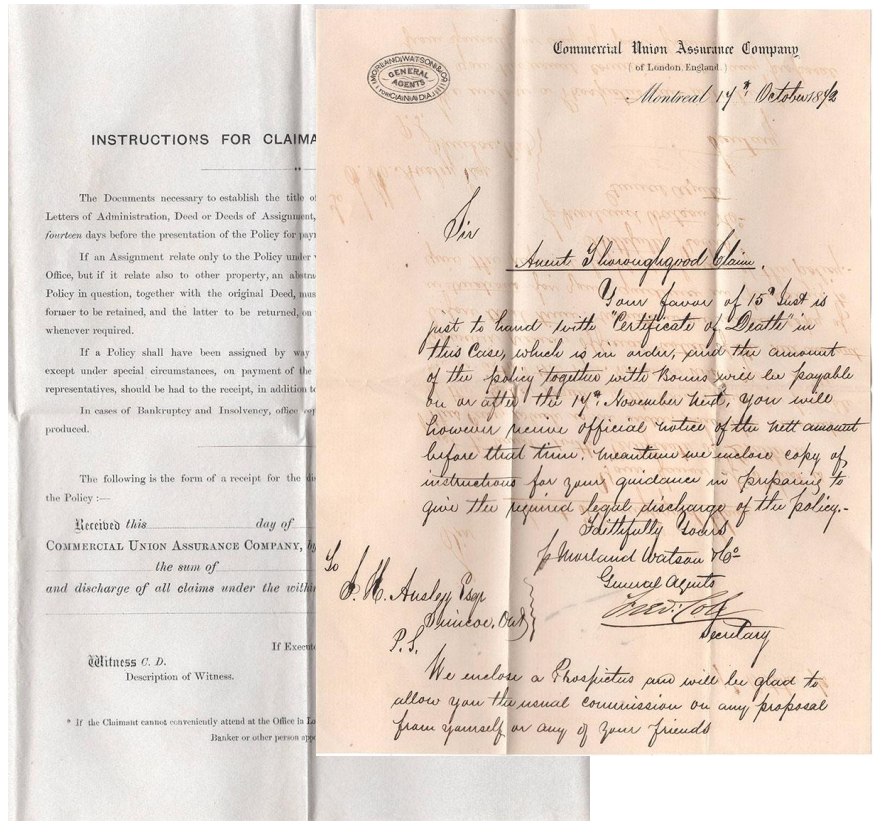 INSTRUCTIONS FOR CLAIMA
The Documents necessary to establish the title of
Letters of Administration, Deed or Deeds of Assignment,
fourteen days before the presentation of the Policy for pay
If an Assignment relate only to the Policy under
Office, but if it relate also to other property, an abstra
Policy in question, together with the original Deed, mus
former to be retained, and the latter to be returned, on
whenever required.
If a Policy shall have been assigned by way
except under special circumstances, on payment of the
representatives, should be had to the receipt, in addition to
In cases of Bankruptcy and Insolvency, office cop
produced.
The following is the form of a receipt for the di
the Policy :—
Received this day of
COMMERCIAL UNION ASSURANCE COMPANY, by
the sum of
and discharge of all claims under the within
If Execu
Witness C. D.
Description of Witness.
* If the Claimant cannot conveniently attend at the Office in Lo
Banker or other person appo
MORLAND, WATSON & CO.
GENERAL
AGENTS
FOR CANADA
Commercial Union Assurance Company
( of London, England. )
Montreal 17th October 1872
Sir
Anent Thoroughgood Claim.
Your favor of 15th Inst is
just to hand with "Certificate of Death" in
this Case, which is in order, and the amount
of the policy together with Bonus will be payable
on or after the 17th November next, you will
however receive official notice of the nett amount
before that time. Meantime we inclose copy of
instructions for your guidance in preparing to
give the required legal discharge of the policy.-
Faithfully Yours
p Morland Watson & Co
General Agents
Fred. Cole
Secretary
To
J. H. Ansley Esqr
Simcoe, Ont
P.S.
We enclose a Prospectus and will be glad to
allow you the usual commission on any proposal
from yourself or any of your friends